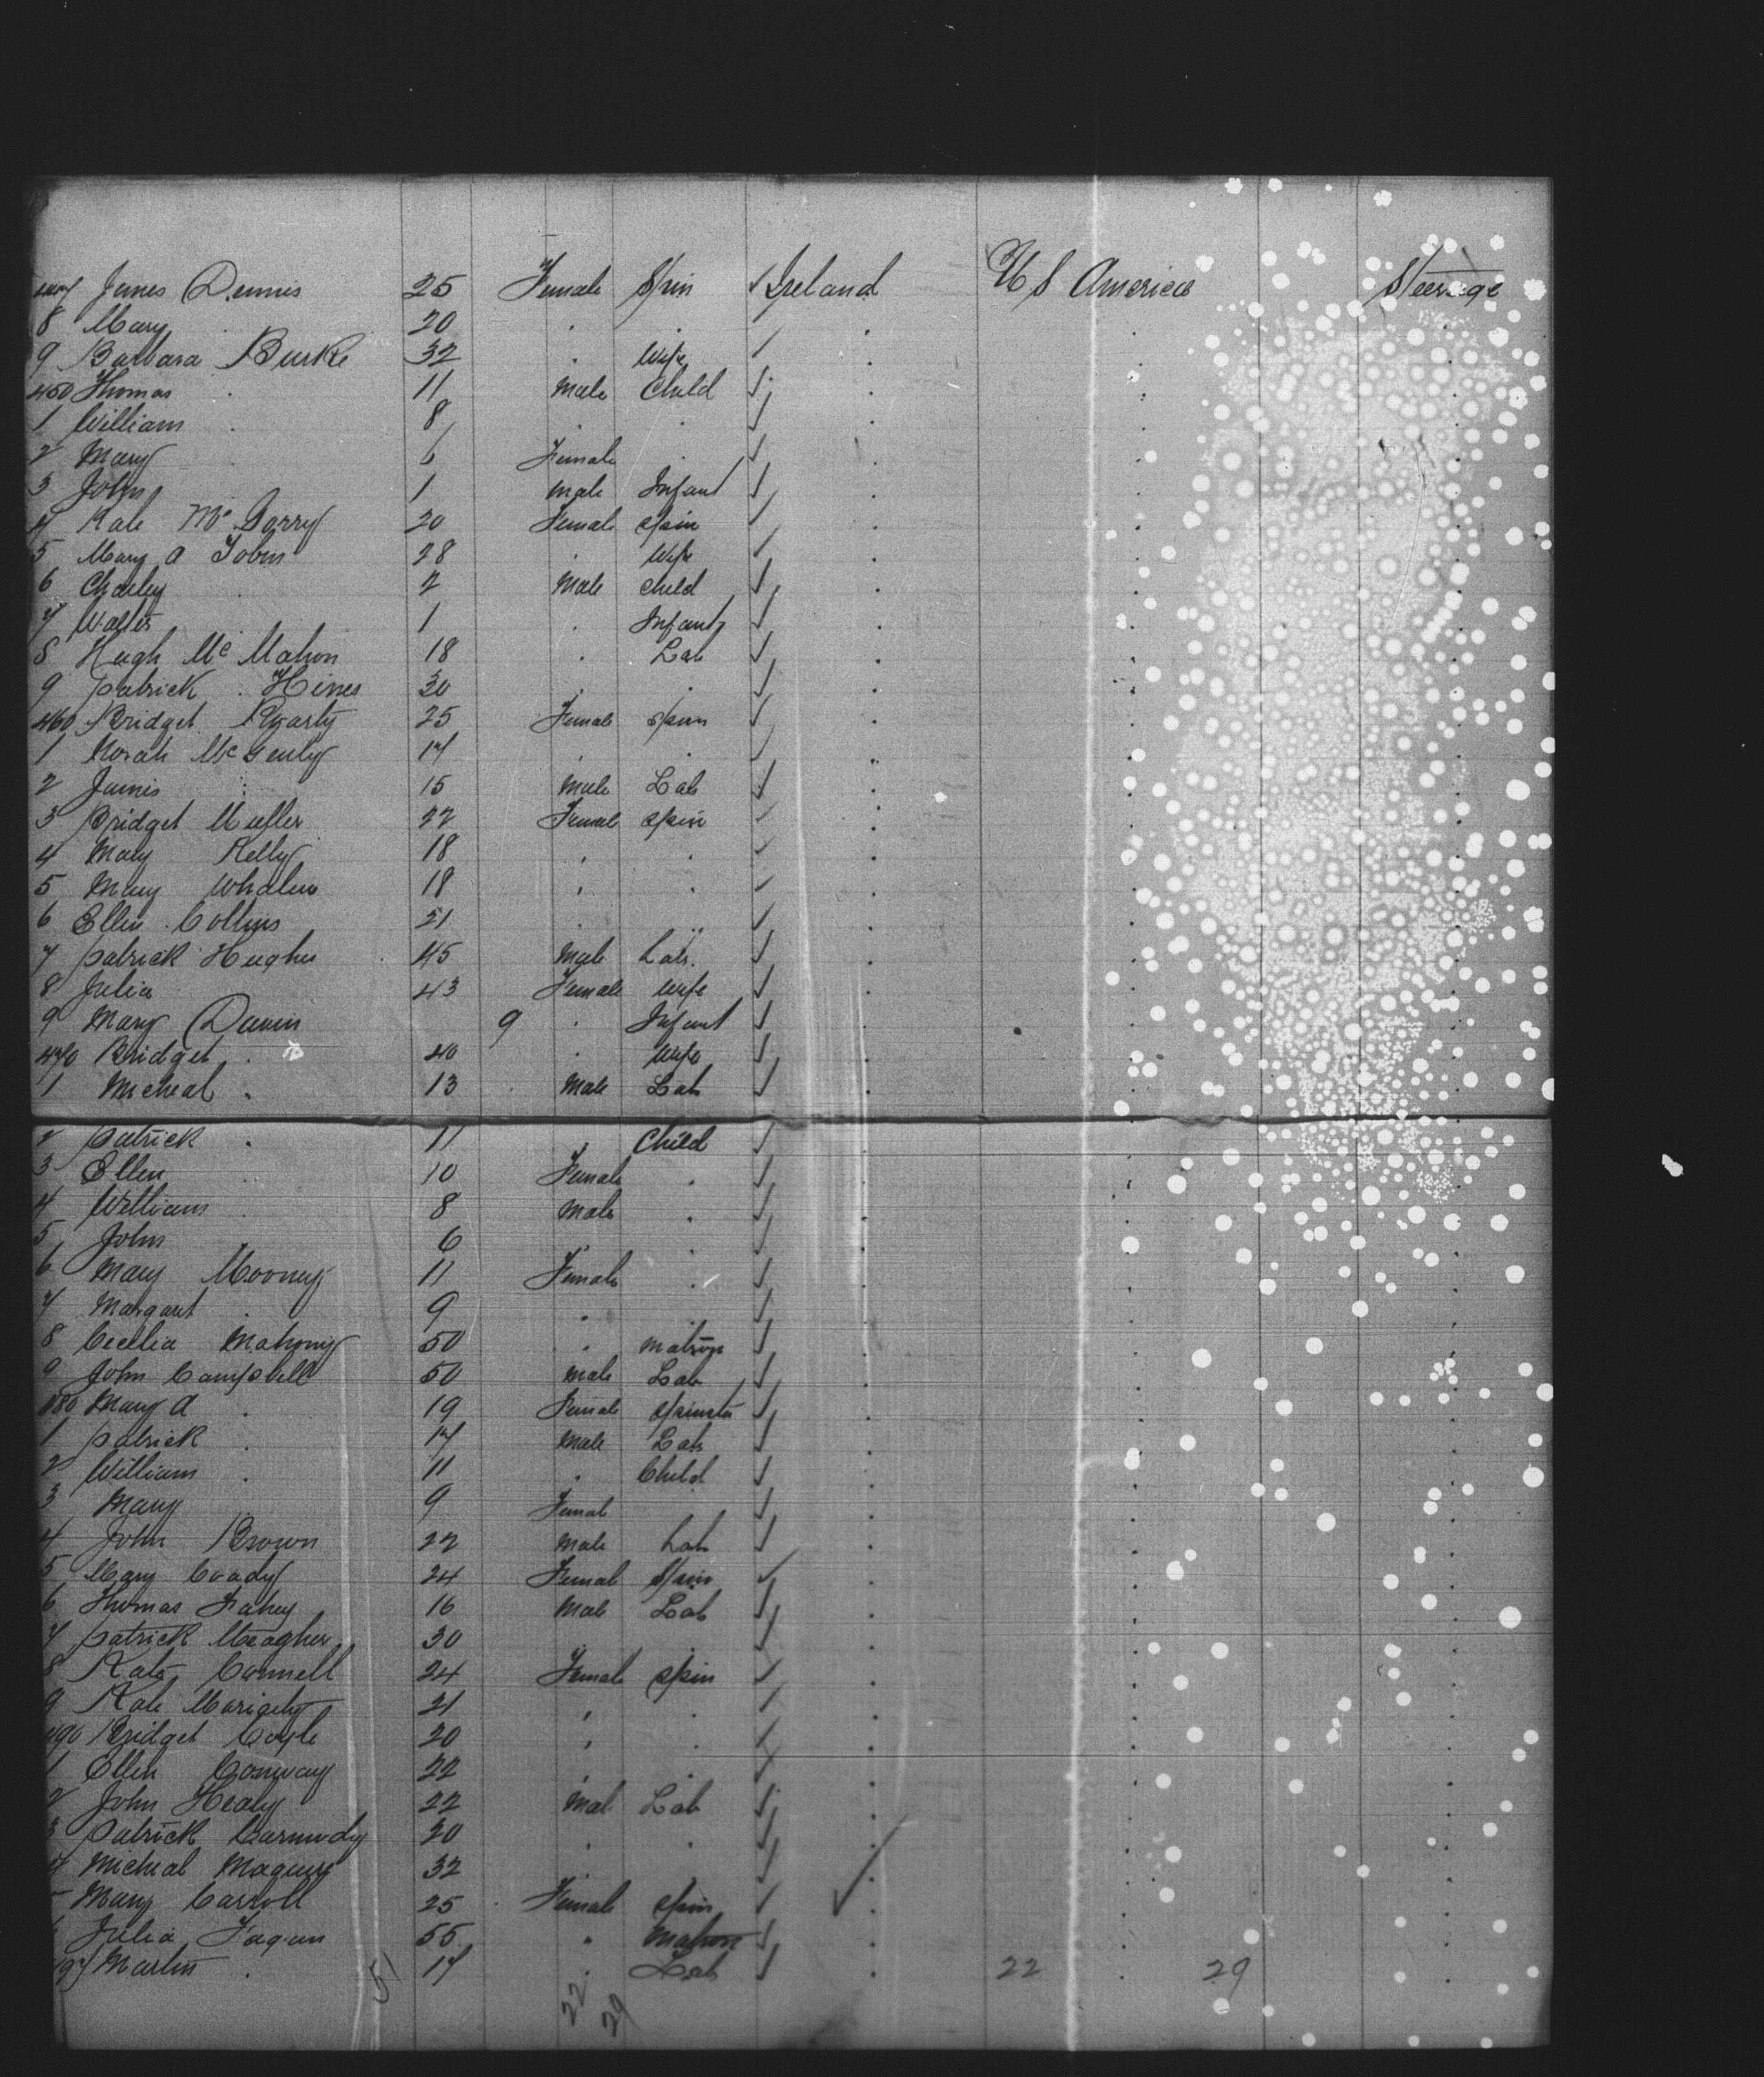 447 James Dennis 25 Female Spin ✓ Ireland U S America Steerage
8 Mary . 20 . .
9 Barbara Burke 32 . Wife ✓ .
450 Thomas . 11 Male Child ✓ .
1 William . 8 . . ✓ .
2 Mary 6 Female . ✓ .
3 John 1 Male Infant ✓ .
4 Kate Mc Garry 20 Female Spin ✓ .
5 Mary A Tobin 28 . Wife ✓ .
6 Charley 2 Male Child ✓ .
7 Walter 1 . Infant ✓ .
8 Hugh Mc Mahon 18 . Lab ✓ .
9 Patrick Hines 30 . . ✓ .
460 Bridget 25 Female Spin ✓ .
1 Norah 17 . . ✓ .
2 James 15 Male Lab ✓ .
3 Bridget 22 Female Spin ✓ .
4 Mary Kelly 18 . . ✓ .
5 Mary Whalen 18 . . ✓ .
6 Ellen Collins 21 . . ✓ .
7 Patrick Hughes 45 Male Lab. ✓ .
8 Julia 43 Female Wife ✓ .
9 Mary Davin 9 . Infant ✓ .
470 Bridget . 40 . Wife ✓ .
1 Micheal . 13 Male Lab ✓ .
2 Patrick . 11 . Child ✓ .
3 Ellen 10 Female . ✓ .
4 William 8 Male . ✓ .
5 John 6 . . ✓ .
6 Mary Mooney 11 Female . ✓ .
7 Margaret . 9 . ✓ .
8 Cecelia Mahony 50 . Matron ✓ .
9 John Campbell 50 Male Lab ✓ .
480 Mary A . 19 Female Spinster ✓ .
1 Patrick . 17 Male Lab ✓ .
2 William . 11 . Child ✓ .
3 Mary 9 Female ✓ .
4 John Brown 22 Male Lab ✓ .
5 Mary Coady 24 Female Spin ✓ .
6 Thomas Fahey 16 Male Lab ✓ .
7 Patrick Meagher 30 ✓ .
8 Kate Connell 24 Female Spin ✓ .
9 Kate 21 . . ✓ .
490 Bridget Coyle 20 . . ✓ .
1 Ellen Conway 22 . . ✓ .
2 John Healy 22 Mal Lab ✓ .
3 Patrick Carmody 20 . . ✓ .
4 Micheal Maguire 32 . ✓ .
5 Mary Carroll 25 Female Spin ✓ .
Julia Fagan 55 " Matron ✓ .
497 Martin . 17 . Lab ✓ . 22 29
51 22 29